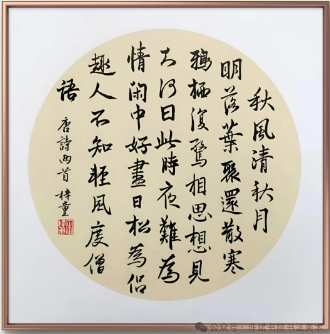 秋風清秋月
明落葉聚還散寒
鴉棲復驚相思想見
知何日此時夜難為
情閑中好盡日松為侶
趣人不知輕風度僧
語
唐詩两首 梓童